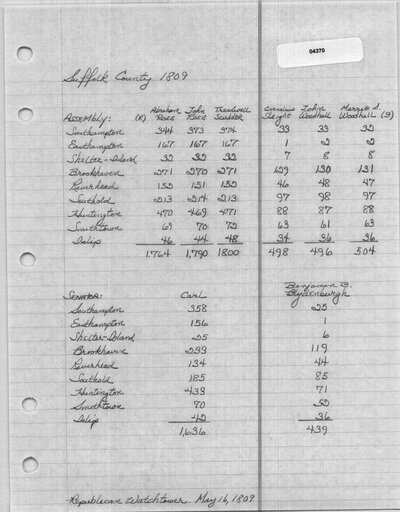 04370
Suffolk County 1809
Abraham John Treadwell Cornelius John Merrit S.
ASSEMBLY: (R) ROSE ROSE Scudder Sleight Woodhull Woodhull (F)
Southampton 344 373 374 33 33 32
Easthampton 167 167 167 1 2 2
Shelter-Island 32 32 32 7 8 8
Brookhaven 271 270 271 129 130 131
Riverhead 152 151 152 46 48 47
Southold 213 214 213 97 98 97
Huntington 470 469 471 88 87 88
Smithtown 69 70 72 63 61 63
Islip 46 44 48 34 36 36
1,764 1,790 1800 498 496 504
Benjamin B.
SENATOR: Carl Blydenburgh
Southampton 358 25
Easthampton 156 1
Shelter-Island 25 6
Brookhaven 233 119
Riverhead 134 44
Southold 185 85
Huntington 433 71
Smithtown 70 52
Islip 42 36
1,636 439
Republican Watchtower. May 16, 1809